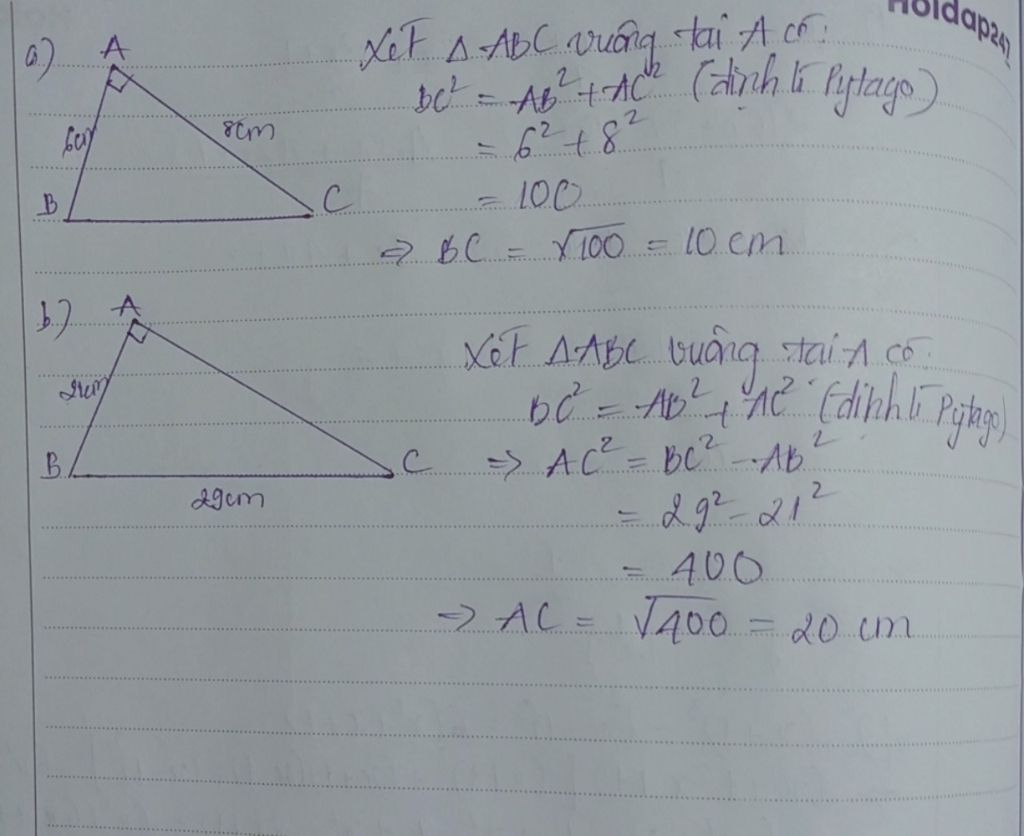 Hoidap247
a)
A
6cm
8cm
B
C
Xét Δ ABC vuông tại A có:
BC² = AB² + AC² (định lí Pytago)
= 6² + 8²
= 100
⇒ BC = √100 = 10 cm
b)
A
21cm
B
C
29cm
Xét ΔABC vuông tại A có:
BC² = AB² + AC² (định lí Pytago)
⇒ AC² = BC² - AB²
= 29² - 21²
= 400
⇒ AC = √400 = 20 cm